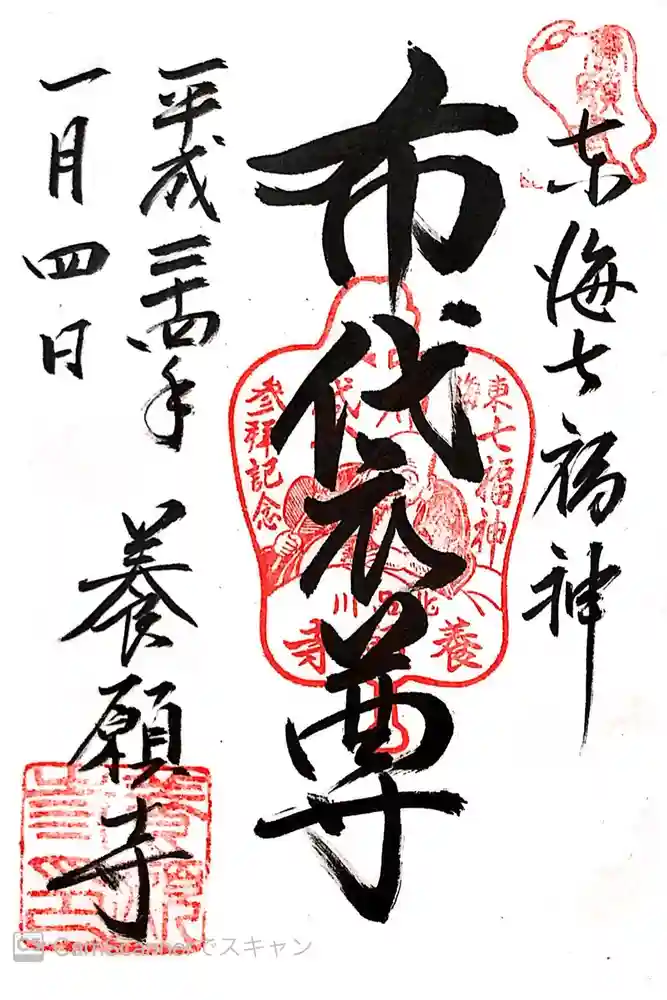 東海七福神
布袋尊
平成二十四年
一月四日
養願寺
東海七福神
参拝記念
北品川
養願寺
CamScannerでスキャン